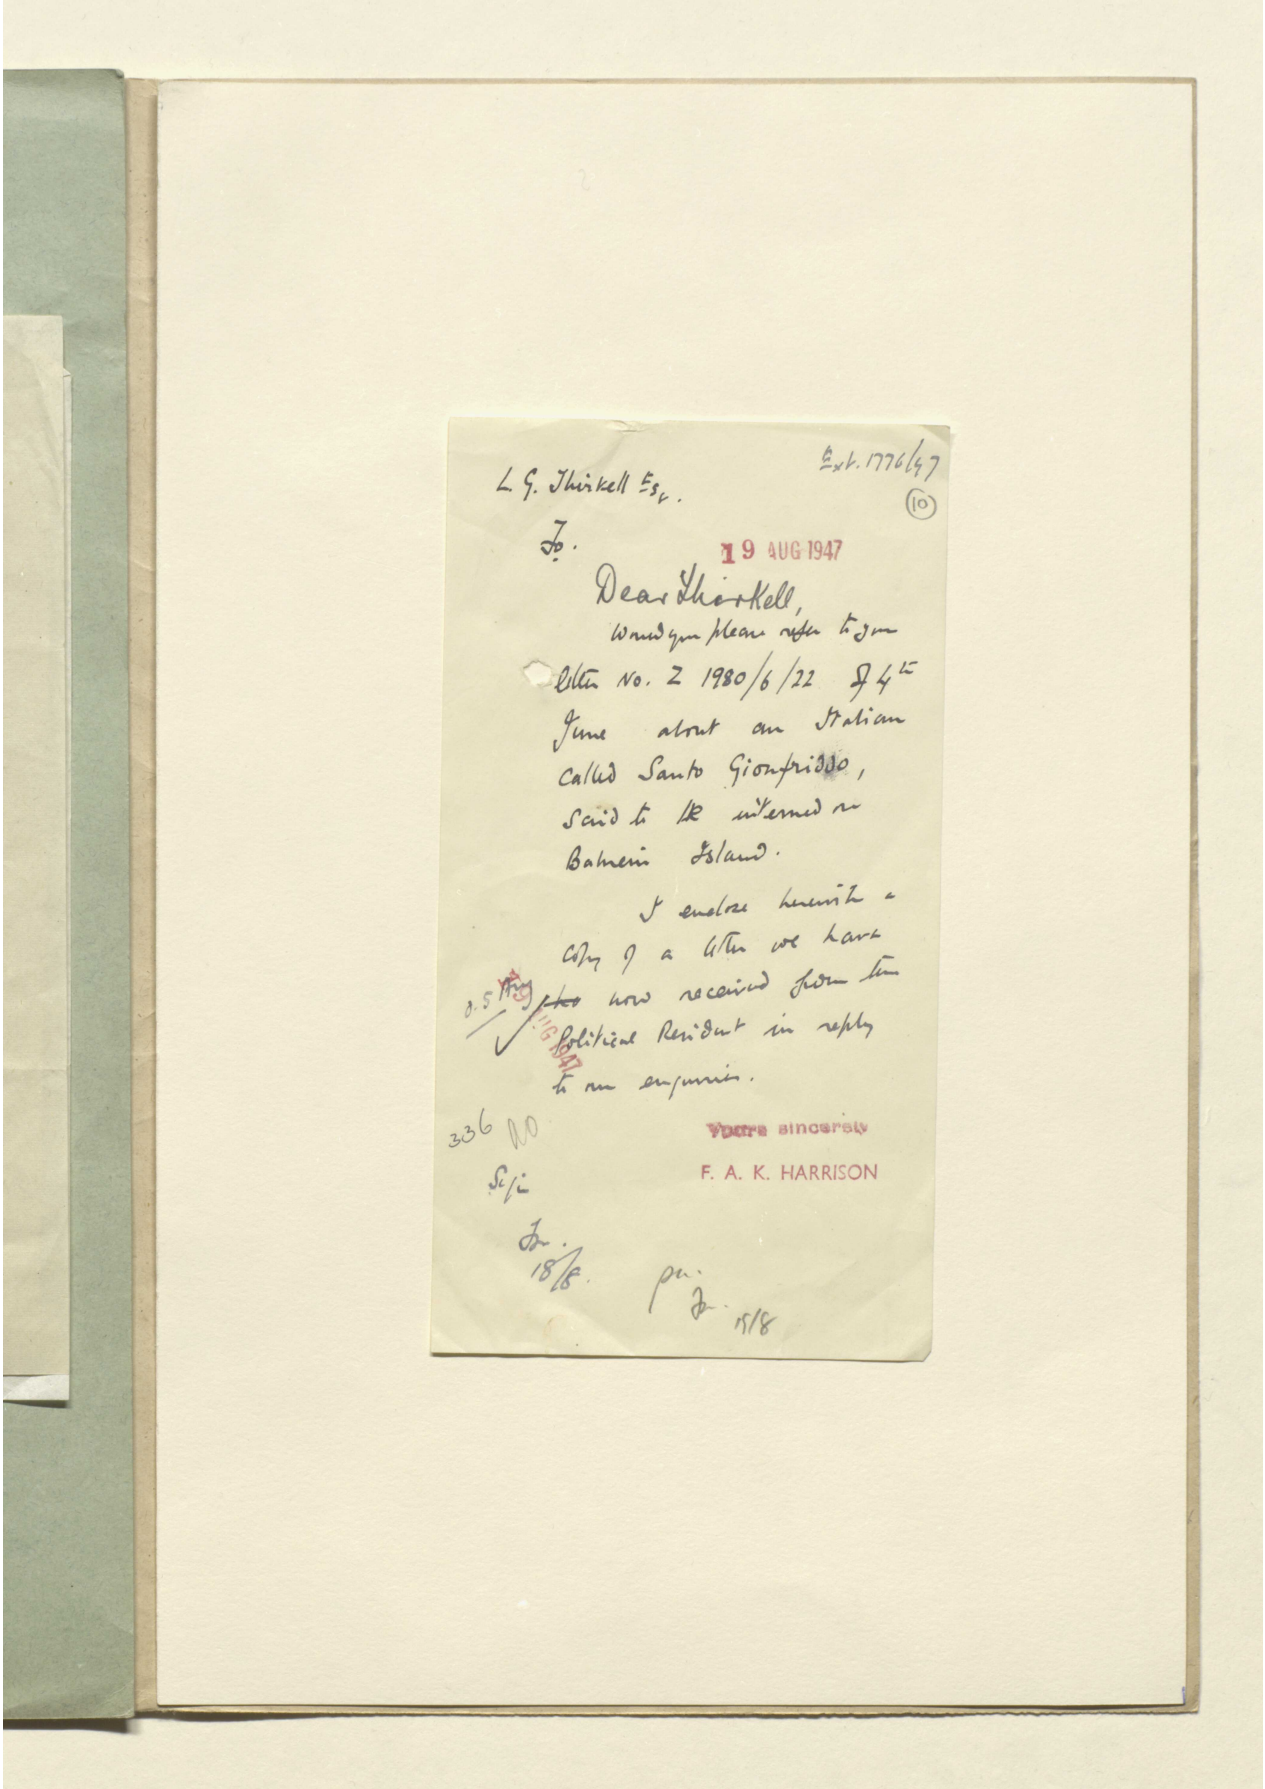 Ext. 1776/47
10
L. G. Thirkell Esq.
F.O.
19 AUG 1947
Dear Thirkell,
Would you please refer to your
letter No. Z 1980/6/22 of 4th
June about an Italian
called Santo Gionfriddo,
said to be interned on
Bahrein Island.
I enclose herewith a
copy of a letter we have
d. 5 Aug
19 AUG 1947
now received from the
Political Resident in reply
to our enquiries.
Yours sincerely
F. A. K. HARRISON
336
18/8.
19/8